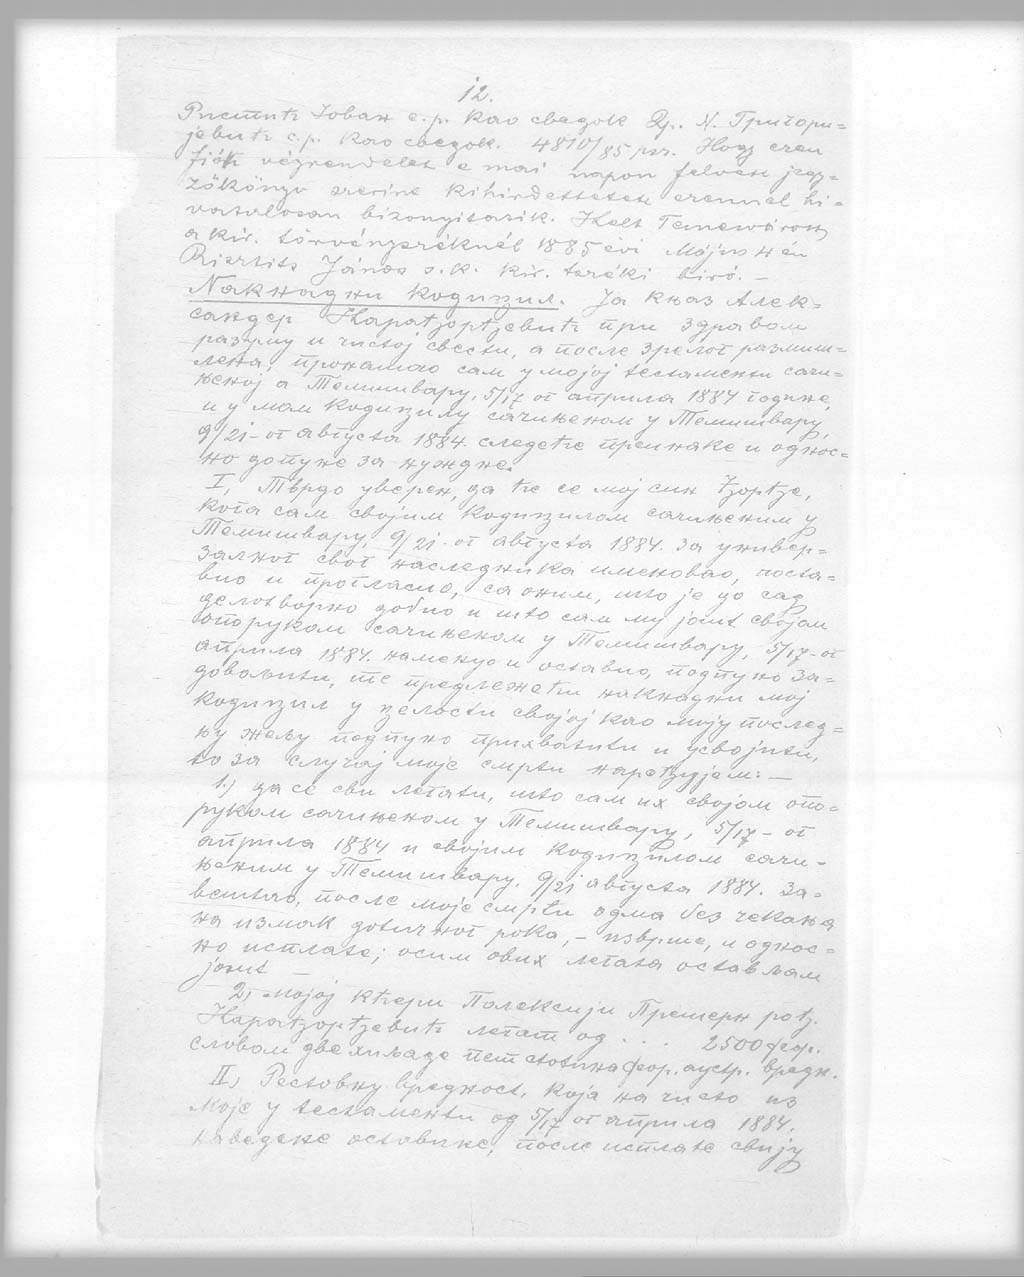 12.
Ристић Јован с.р. као сведок Др. Н. Григори=
јевић с.р. као сведок. 4810/85 psz. Hogy ezen
fiók végrendelet a mai napon felvett jegy=
zőkönyv szerint kihirdettetett ezennel hi=
vatalosan bizonyitatik. Kelt Temesvárott
a kir. törvényszéknél 1885 évi Május 4 én
János s.k. kir. tszéki biró. –
Накнадни кодицил. Ја Књаз Алек-
сандер Карађорђевић при здравом
разуму и чистој свести, а после зрелог размиш=
лења, пронашао сам у мојој тестаменти сачи=
њеној а Темишвару, 5/17 ог априла 1884 године,
и у мом кодицилу сачињеном у Темишвару,
9/21-ог августа 1884. следеће преинаке и однос=
но допуне за нуждне.
I, Тврдо уверен, да ће се мој син Ђорђе,
кога сам својим кодицилом сачињеним у
Темишвару, 9/21-ог августа 1884. за универ=
залног свог наследника именовао, поста=
вио и прогласио, са оним, што је до сад
делотворно добио и што сам му јошт својом
опоруком сачињеном у Темишвару, 5/17-ог
априла 1884. наменуо и оставио, подпуно за=
довољити, те предлежећи накнадни мој
кодицил у целости својој као моју послед=
њу жељу подпуно прихватити и усвојити,
то за случај моје смрти наређујем: –
1.) да се сви легати, што сам их својом опо=
руком сачињеном у Темишвару, 5/17-ог
априла 1884 и својим кодицилом сачи-
њеним у Темишвару, 9/21 августа 1884. за=
вештао, после моје смрти одма без чекања
на измак дотичног рока, – изврше, и однос=
но исплате; осим ових легата остављам
јошт –
2, Мојој кћери Полексији Прешерн рођ.
Карађорђевић легат од . . . 2500 фор.
словом две хиљаде пет стотина фор. аустр. вредн.
II, Рестовну вредност, која на чисто из
моје у тестаменти од 5/17 ог априла 1884.
наведене оставине, после исплате свију